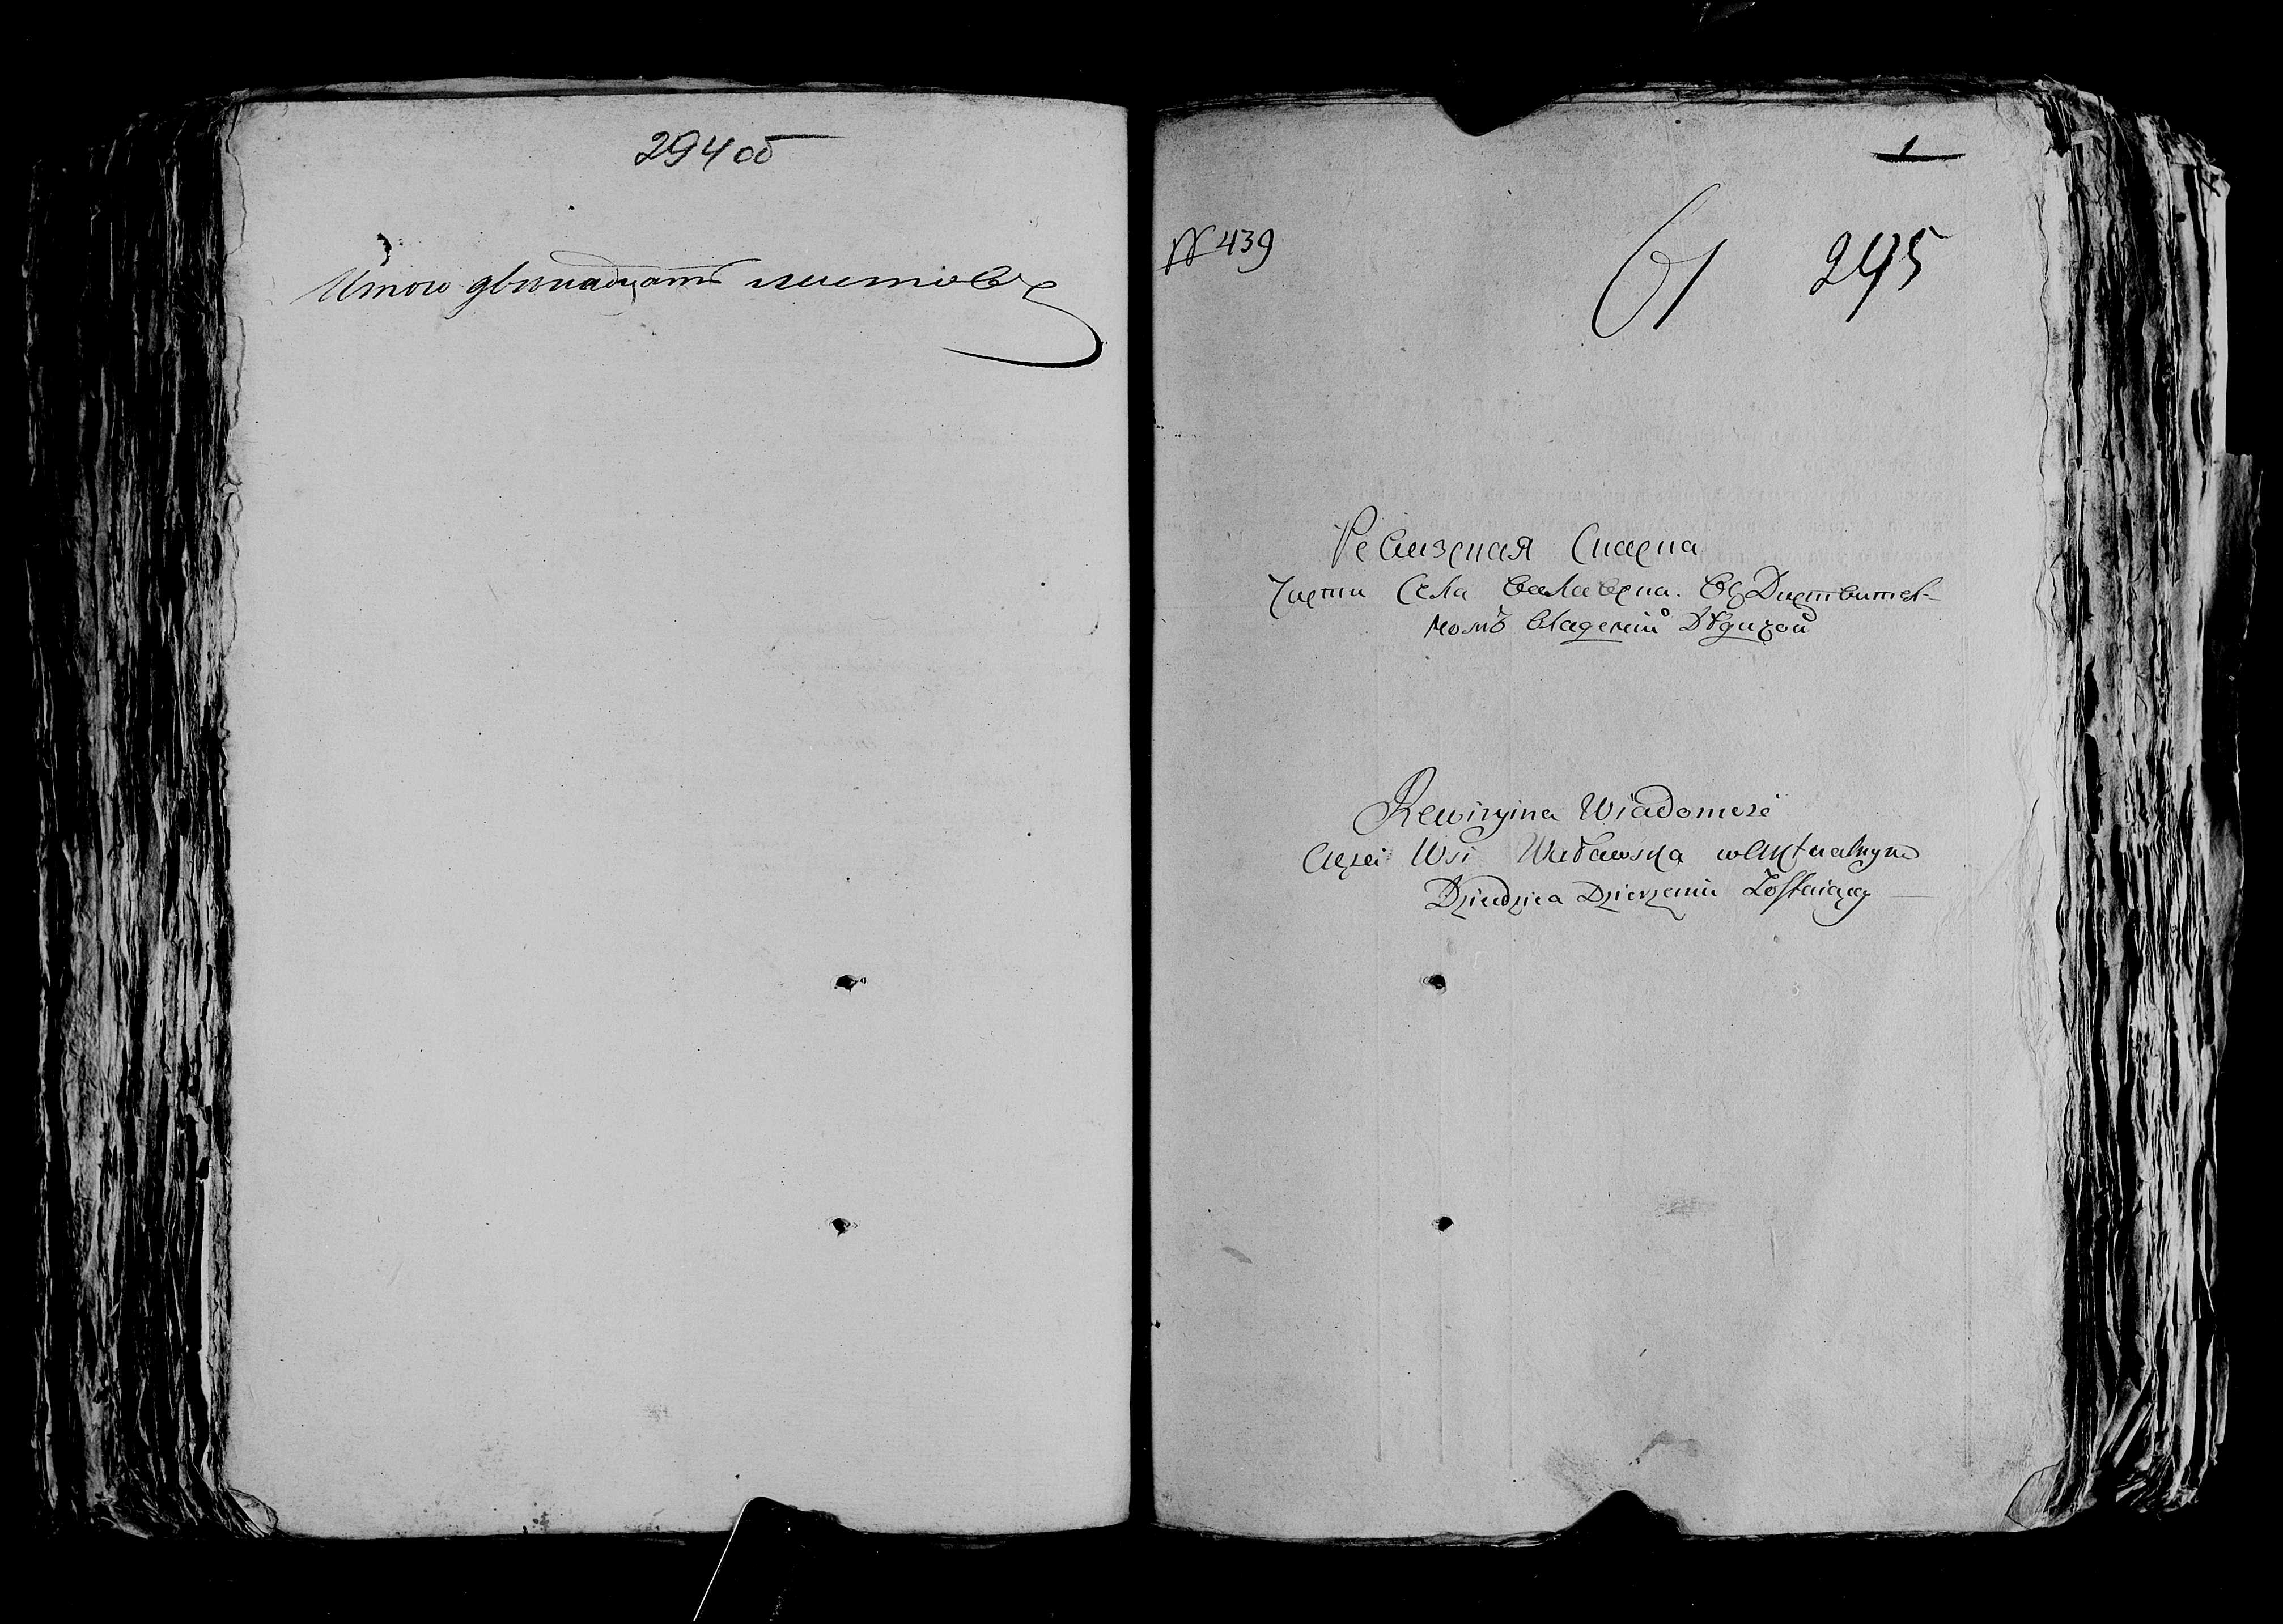 294 об
Итого двенадцать листовъ
1
№ 439
61 295
Ревизская Сказка
Части Села Валавска. Въ Дѣствител-
номъ владении Дѣдизой
Rewizyina Wiadomość
Częsci Wsi Waławska w Aktualnym
Dziedzica Dzierzeniu Zostaiącey